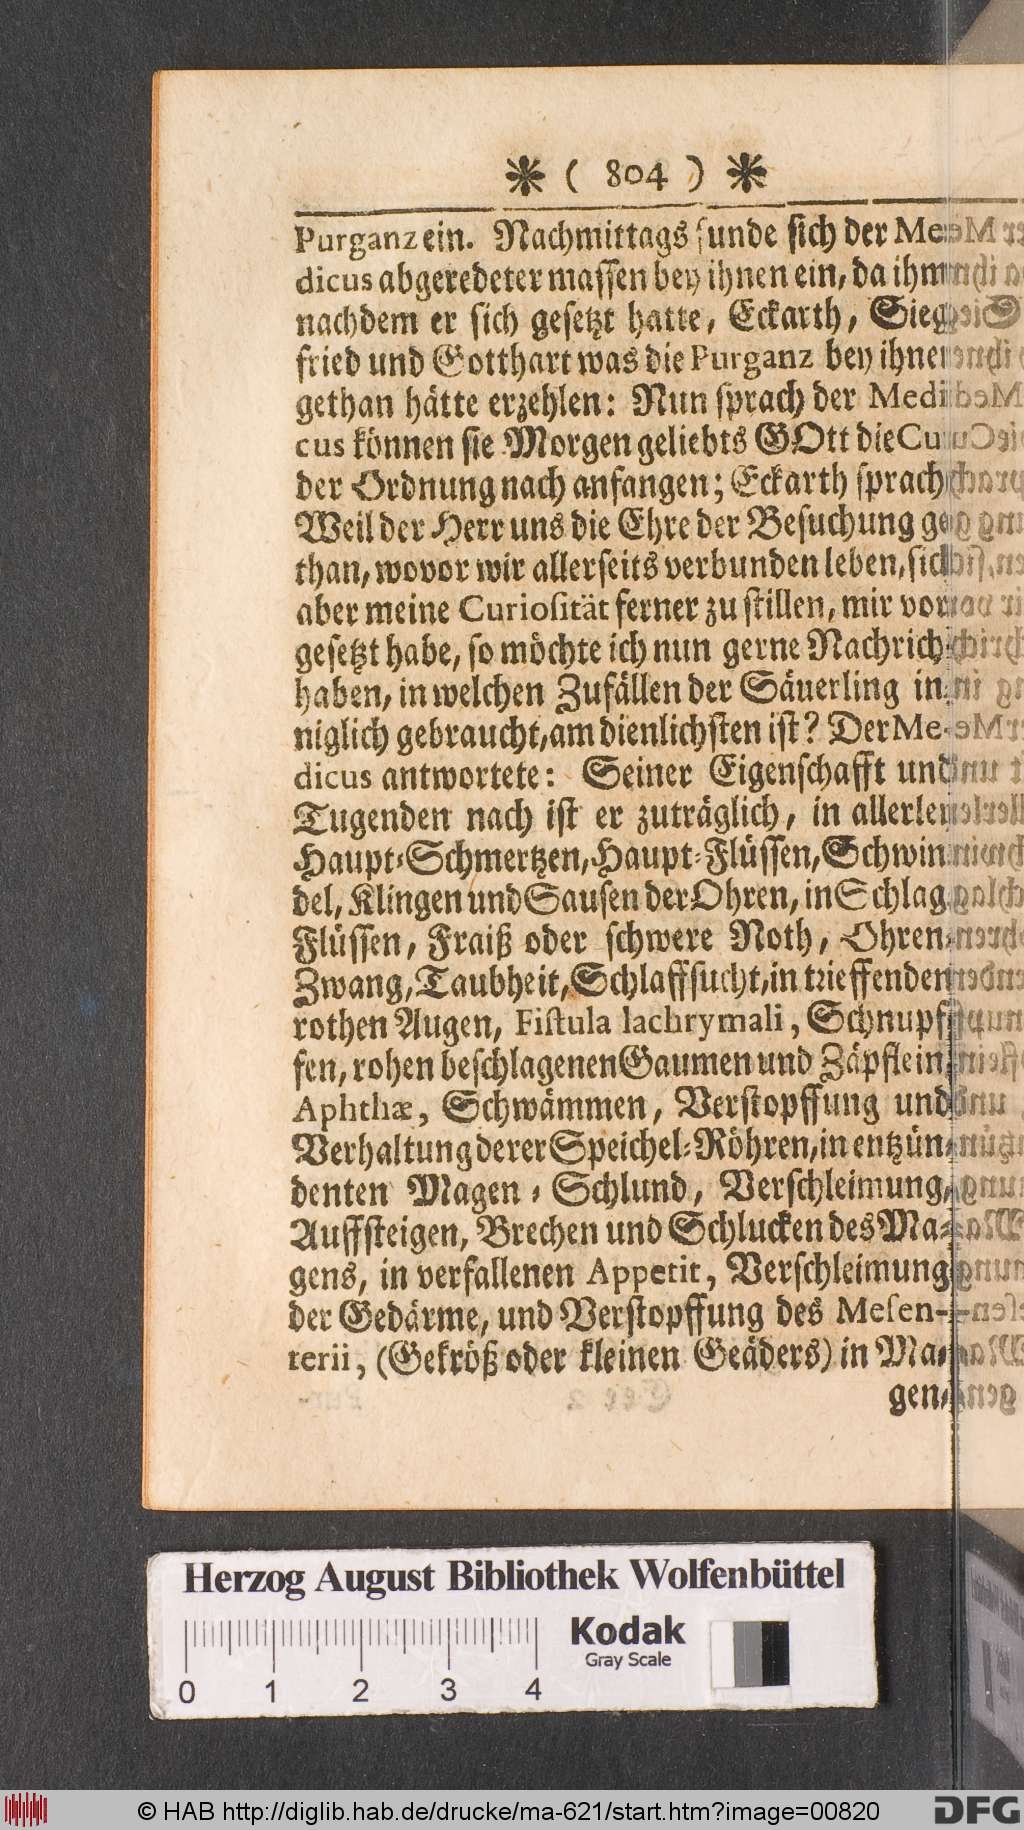 ✻ ( 804 ) ✻
Purganz ein. Nachmittags funde sich der Me-
dicus abgeredeter massen bey ihnen ein, da ihm
nachdem er sich gesetzt hatte, Eckarth, Sieg-
fried und Gotthart was die Purganz bey ihnen
gethan hätte erzehlen: Nun sprach der Medi-
cus können sie Morgen geliebts GOtt die Cur
der Ordnung nach anfangen; Eckarth sprach
Weil der Herr uns die Ehre der Besuchung ge-
than, wovor wir allerseits verbunden leben, sich
aber meine Curiosität ferner zu stillen, mir vor
gesetzt habe, so möchte ich nun gerne Nachrich
haben, in welchen Zufällen der Säuerling in-
niglich gebraucht, am dienlichsten ist? Der Me-
dicus antwortete: Seiner Eigenschafft und
Tugenden nach ist er zuträglich, in allerley
Haupt-Schmertzen, Haupt-Flüssen, Schwin-
del, Klingen und Sausen der Ohren, in Schlag-
Flüssen, Fraiß oder schwere Noth, Ohren-
Zwang, Taubheit, Schlaffsucht, in trieffenden
rothen Augen, Fistula lachrymali, Schnupf-
fen, rohen beschlagenen Gaumen und Zäpflein,
Aphthæ, Schwämmen, Verstopffung und
Verhaltung derer Speichel-Röhren, in entzün-
denten Magen-Schlund, Verschleimung,
Auffsteigen, Brechen und Schlucken des Ma-
gens, in verfallenen Appetit, Verschleimung
der Gedärme, und Verstopffung des Mesen-
terii, (Gekröß oder kleinen Geäders) in Ma-
gen-
Herzog August Bibliothek Wolfenbüttel
Kodak
Gray Scale
0 1 2 3 4
© HAB http://diglib.hab.de/drucke/ma-621/start.htm?image=00820
DFG